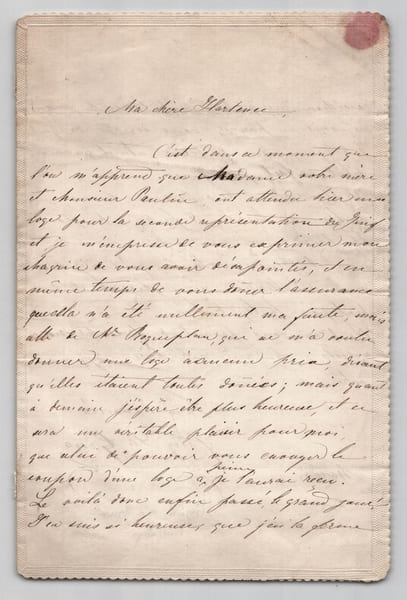 Ma chère Hortense,
C'est dans ce moment que
l'on m'apprend que Madame votre mère
et Monsieur Paulin ont attendu hier ma
loge pour la seconde représentation du Juif
et je m'empresse de vous exprimer mon
chagrin de vous avoir désapointés, et en
même temps de vous doner l'assurance
que cella n'a été nullement ma faute, mais
celle de Mr. Roqueplan qui ne m'a voulu
donner une loge à aucun prix disant
qu'elles étaient toutes données; mais quant
à demain j'éspère être plus heureuse, et ce
sera une véritable plaisir pour moi
que celui de pouvoir vous envoyer le
coupon d'une loge à peine je l'aurai reçu.
Le voilà donc enfin passé, le grand jour!
J'en suis si heureuse, que j'en la